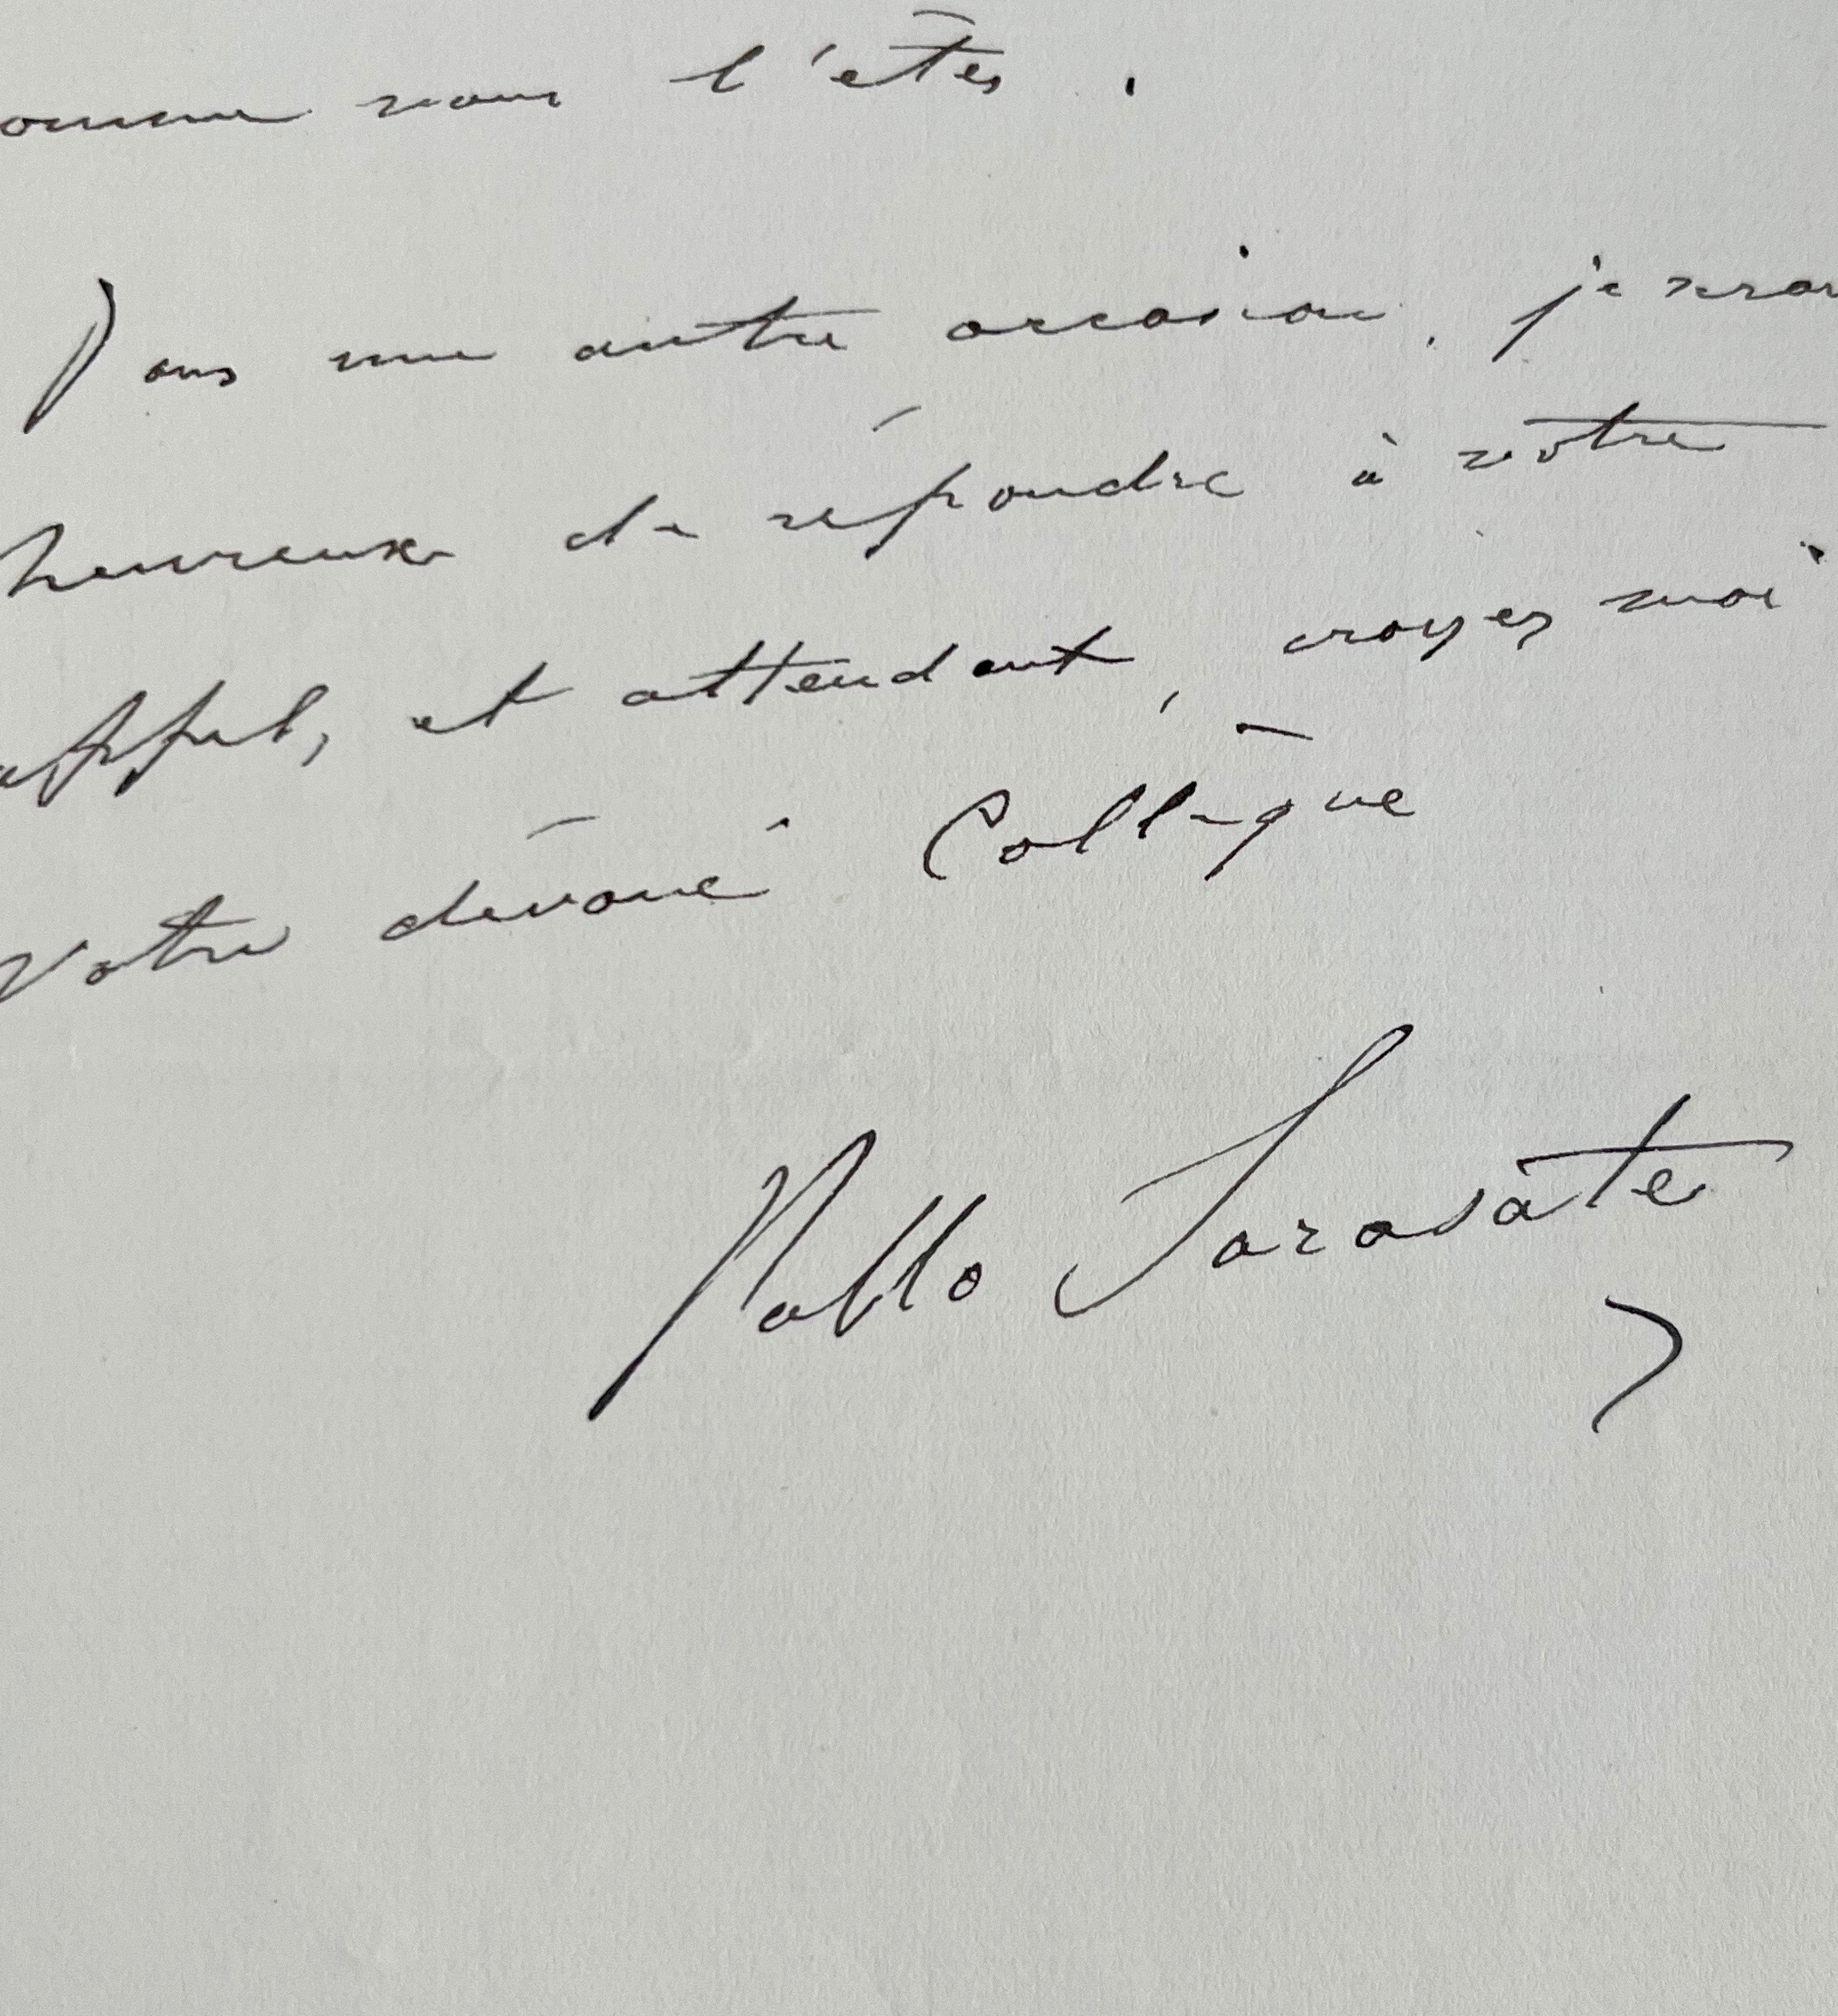 omme vous l'êtes.
Dans une autre occasion, je serai
heureux de répondre à votre
appel, et attendant, croyez moi
Votre dévoué Collègue
Pablo Sarasate